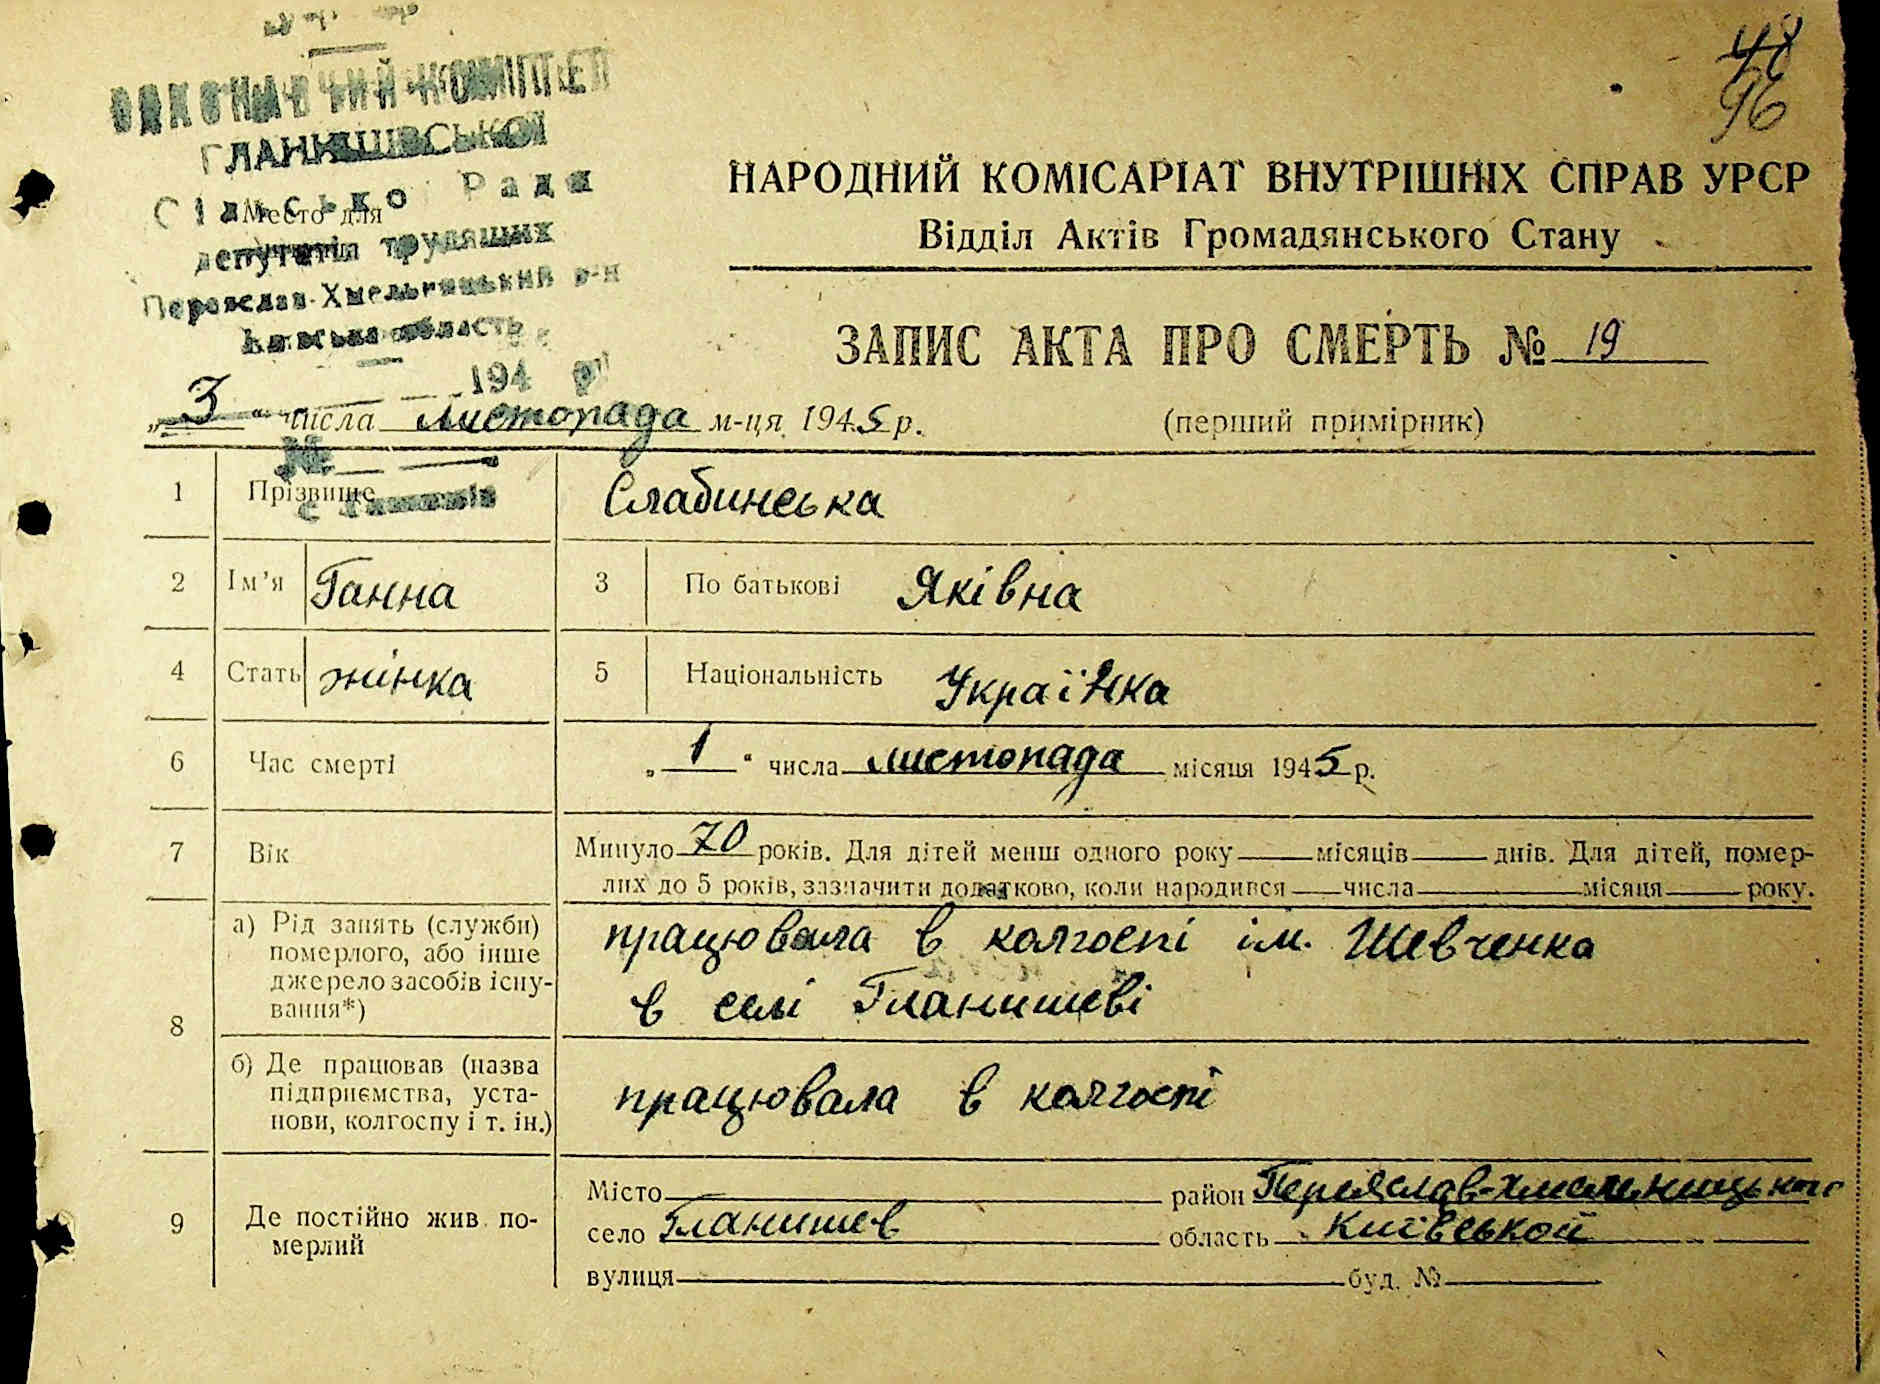 48
96
ВИКОНАВЧИЙ КОМІТЕТ
ГЛАНИШІВСЬКОЇ
Сільсько Ради
Место для
депутатів трудящих
Переяслав-Хмельницький р-н
Київська область
194
НАРОДНИЙ КОМІСАРІАТ ВНУТРІШНІХ СПРАВ УРСР
Відділ Актів Громадянського Стану
ЗАПИС АКТА ПРО СМЕРТЬ № 19
„3“ числа листопада м-ця 1945 р. (перший примірник)
№
1 Прізвище Слабинська
2 Ім’я Ганна 3 По батькові Яківна
4 Стать жінка 5 Національність Українка
6 Час смерті „1“ числа листопада місяця 1945 р.
7 Вік Минуло 70 років. Для дітей менш одного року місяців днів. Для дітей, помер-
лих до 5 років, зазначити додатково, коли народився числа місяця року.
8 а) Рід занять (служби)
померлого, або інше
джерело засобів існу-
вання*)
працювала в колгоспі ім. Шевченка
в селі Гланишеві
б) Де працював (назва
підприємства, уста-
нови, колгоспу і т. ін.)
працювала в колгоспі
9 Де постійно жив по-
мерлий
Місто район Переяслав-Хмельницького
село Гланишев область Київської
вулиця буд. №